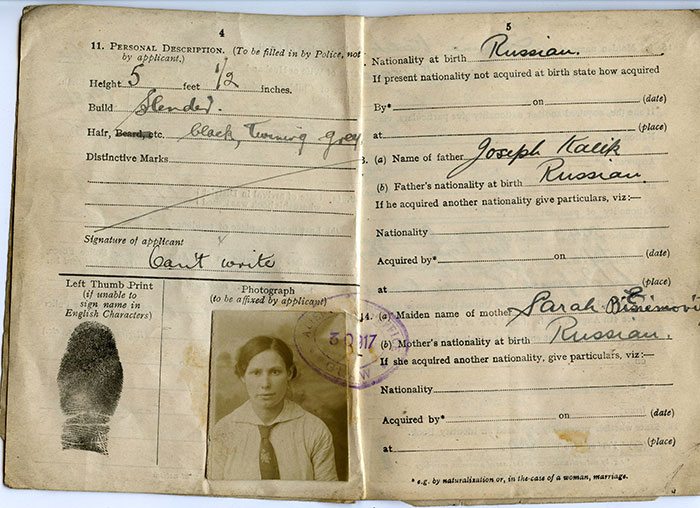 4
11. PERSONAL DESCRIPTION. (To be filled in by Police, not
by applicant.)
Height 5 feet 1/2 inches.
Build Slender.
Hair, Beard, etc. black, turning grey
Distinctive Marks
Signature of applicant
Cant write
Left Thumb Print
(if unable to
sign name in
English Characters)
Photograph
(to be affixed by applicant)
917
5
Nationality at birth Russian.
If present nationality not acquired at birth state how acquired
By* on (date)
at (place)
(a) Name of father Joseph Kalik
(b) Father's nationality at birth Russian.
If he acquired another nationality give particulars, viz:—
Nationality
Acquired by* on (date)
at (place)
14. (a) Maiden name of mother Sarah
(b) Mother's nationality at birth Russian.
If she acquired another nationality, give particulars, viz:—
Nationality
Acquired by* on (date)
at (place)
* e.g. by naturalization or, in the case of a woman, marriage.